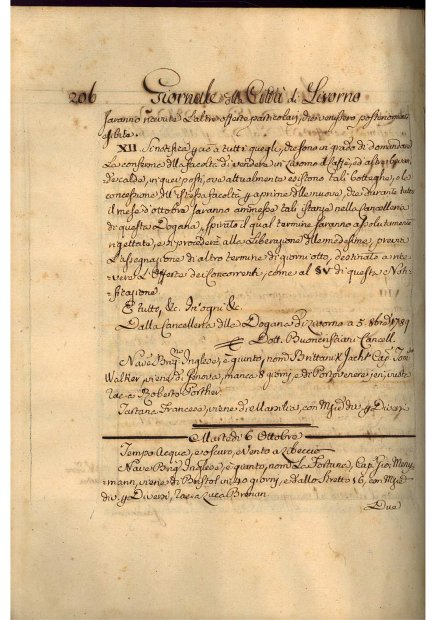 206 Giornale della Città di Livorno
saranno ricevute l'altre offerte particolari, che venissero posteriormente
esibite.
XII. Si notifica p ciò a tutti quegli, che sono in grado di domandare
la concessione della facoltà di vendere in Livorno il Caffè, ed altri liquori,
di calda, in quei posti, ove attualmente esistono tali botteghe, o la
concessione dell'istessa facoltà p aprirne delle nuove, che durante tutto
il mese d'ottobre saranno ammesse tali istanze nella Cancelleria
di questa Dogana, spirato il qual termine saranno assolutamente
rigettate, e si procederà alla liberazione delle medesime, previa
l'assegnazione di altro termine di giorni otto, destinato a rice-
vere l'offerte dei Concorrenti, come al § V di questa Noti-
ficazione.
E tutto, &c. In ogni &c.
Dalla Cancelleria della Dogana di Livorno a 5. 8bre 1789
Dott. Buoncristiani Cancell.
Nave Inglese, è giunto, nom. Brittani Jacht Cap. Tom.
Walker, viene di Genova, manca 8 giorni, e di Portovenere ieri,
rac. a Roberto Porther.
Tartana Francese, viene di Marsilia, con Mid. div. p Diversi
Martedì 6 Ottobre
Tempo Acqua, e oscuro, e Vento a Libeccio
Nave Brig. Inglese, è giunto, nom. La Fortuna, Cap. Gio:
mann, viene di Bristol in 40 giorni, e dallo Stretto 16, con Mid.
div. p Diversi, rac. a Luca Brenan
Due